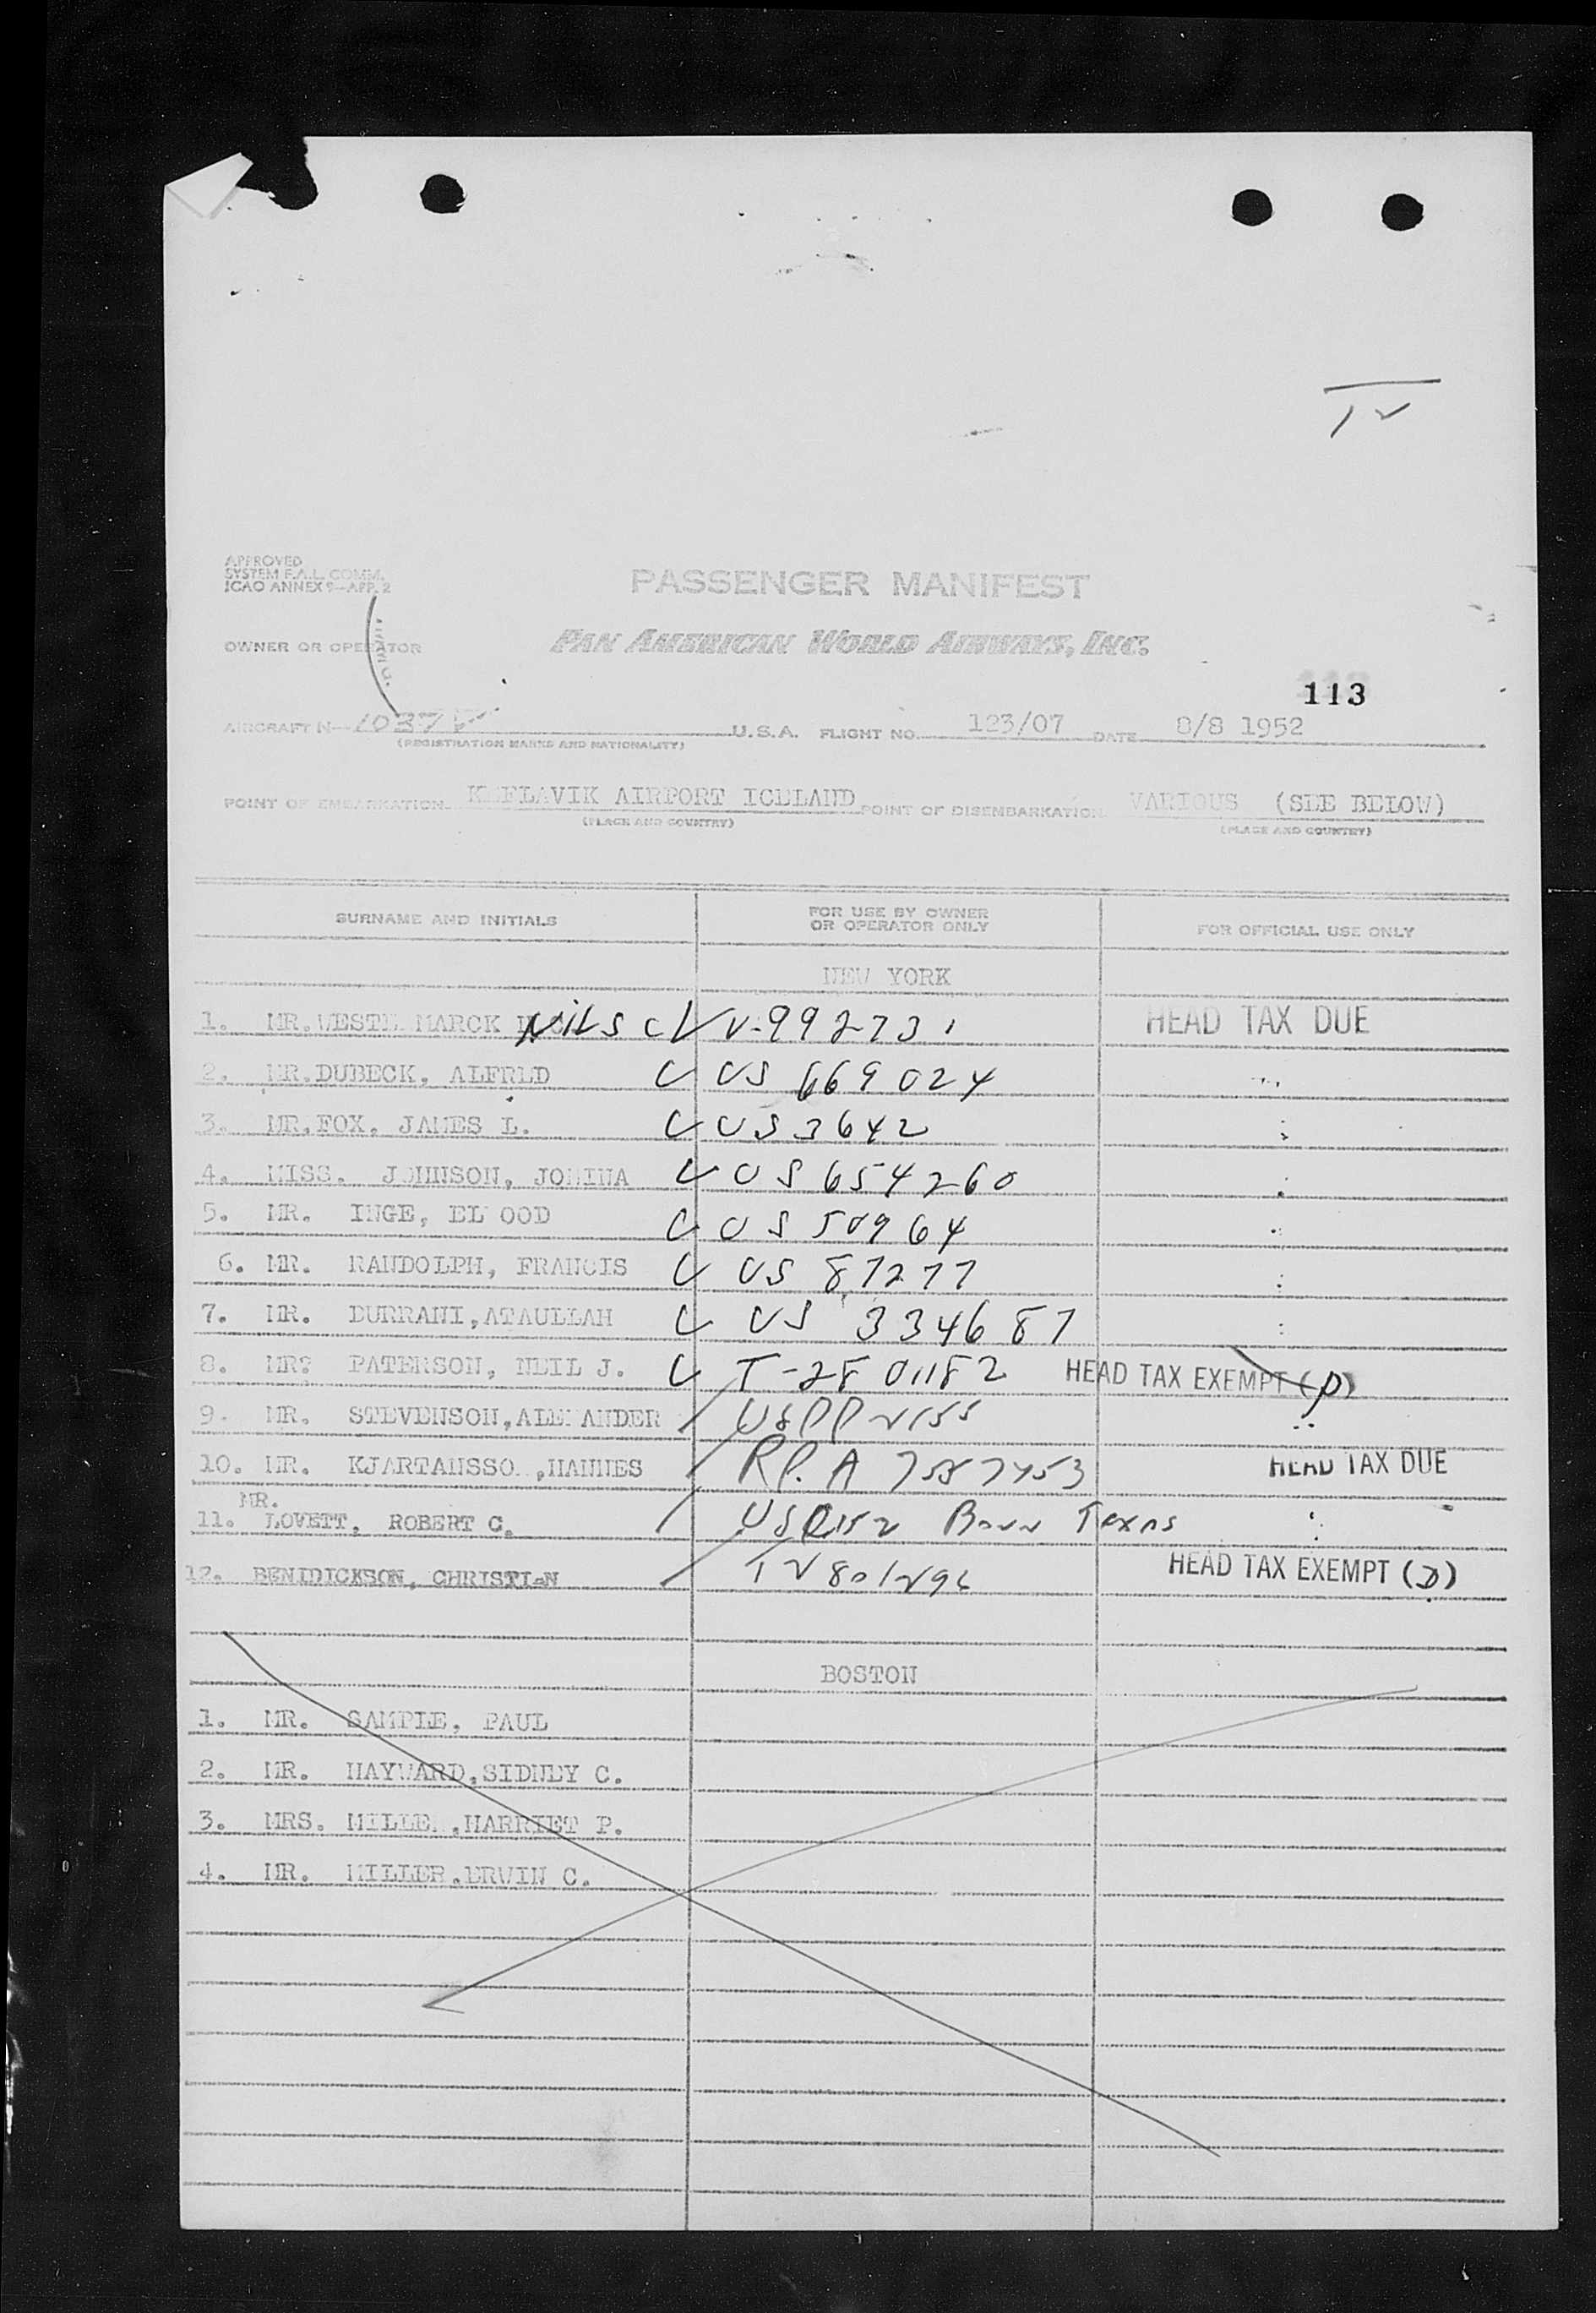 12
APPROVED
SYSTEM F.A.L. COMM.
ICAO ANNEX 9—APP. 2
PASSENGER MANIFEST
OWNER OR OPERATOR
PAN AMERICAN WORLD AIRWAYS, INC.
113
AIRCRAFT N- 1037V U.S.A. FLIGHT NO. 123/07 DATE 8/8 1952
(REGISTRATION MARKS AND NATIONALITY)
POINT OF EMBARKATION K FLAVIK AIRPORT ICELAND POINT OF DISEMBARKATION VARIOUS (SEE BELOW)
(PLACE AND COUNTRY) (PLACE AND COUNTRY)
SURNAME AND INITIALS FOR USE BY OWNER OR OPERATOR ONLY FOR OFFICIAL USE ONLY
NEW YORK
1. MR. WESTE MARCK NILS C V-992731 HEAD TAX DUE
2. MR. DUBECK, ALFRED US 669024
3. MR. FOX, JAMES L. US 3642
4. MISS. JOHNSON, JONINA US 654260
5. MR. INGE, EL OOD US 50964
6. MR. RANDOLPH, FRANCIS US 87277
7. MR. DURRANI, ATAULLAH US 334687
8. MR? PATERSON, NEIL J. T-2801182 HEAD TAX EXEMPT (D)
9. MR. STEVENSON, ALEXANDER USPP 2155
10. MR. KJARTANSSO , HANNES RP. A 7587453 HEAD TAX DUE
MR.
11. LOVETT, ROBERT C. Born Texas
12. BENIDICKSON, CHRISTIAN HEAD TAX EXEMPT (D)
BOSTON
1. MR. SAMPLE, PAUL
2. MR. HAYWARD, SIDNEY C.
3. MRS. MILLE , HARRIET P.
4. MR. MILLER, ERVIN C.